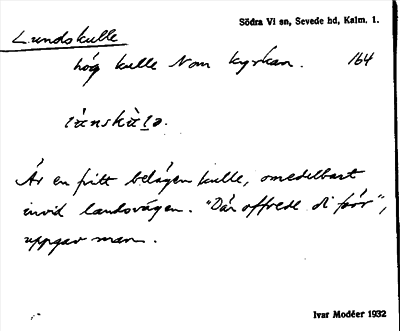 Södra Vi sn, Sevede hd, Kalm. 1.
Lundskulle
hög kulle N om kyrkan. 164
Är en fritt belägen kulle, omedelbart
invid landsvägen. "Där offrede di förr",
uppgav man.
Ivar Modéer 1932